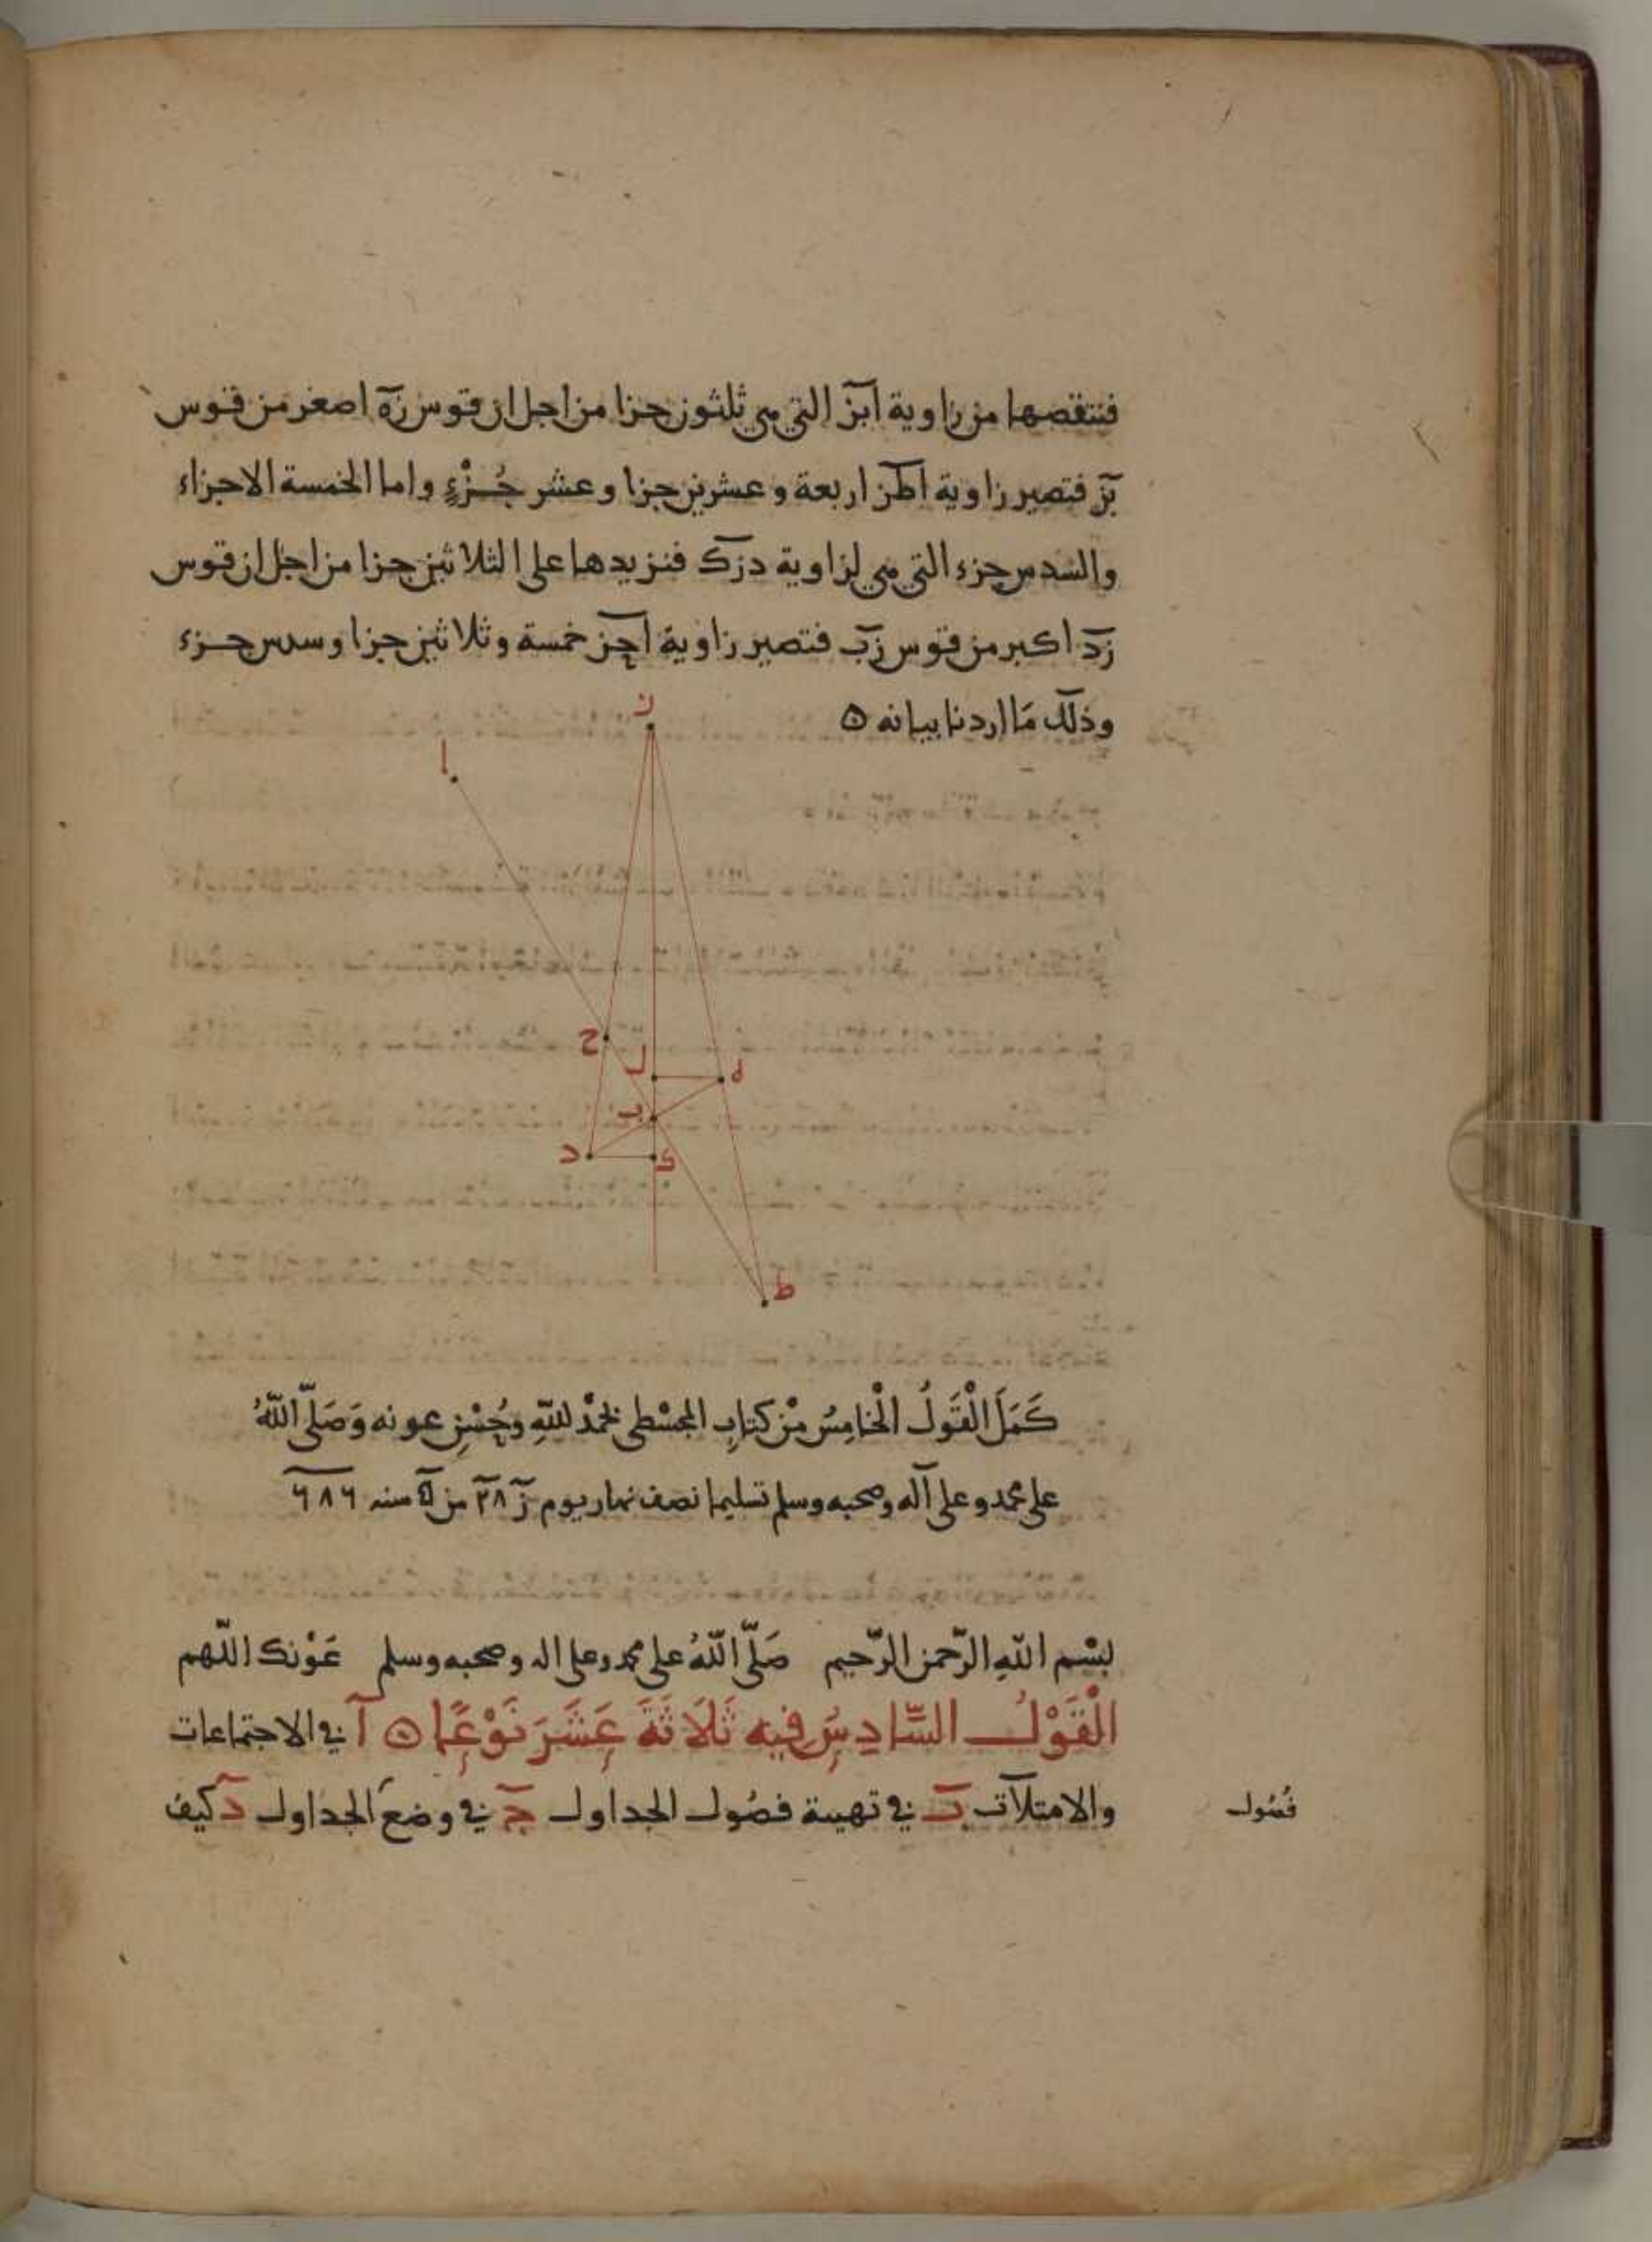 فننقصها من زاوية ابز التي هي ثلثون جزا من اجل ان قوس زه اصغر من قوس
بز فتصير زاوية اطز اربعة وعشرين جزا وعشر جُزْءٍ واما الخمسة الاجزاء
والسدس جزء التي هي لزاوية دزك فنزيدها على الثلاثين جزا من اجل ان قوس
زد اكبر من قوس زب فتصير زاوية احز خمسة وثلاثين جزا وسدس جزء
وذلك مَا اردنا بيانه ه
ز
ا
ح
ل
ه
ب
د
ك
ط
كَمَلَ الْقَولُ الْخامِسُ مِنْ كتابِ المجسْطى بحَمْد للهِ وحُسْنِ عونه وَصَلّى اللهُ
على محمد وعلى آله وصحبه وسلم تسليما نصف نهار يوم ز ٢٨ من سنه ٦٨٦
بسْم اللهِ الرّحمن الرّحيم صَلّى اللهُ على محمد وعلى اله وصحبه وسلم عَوْنك اللّهم
الْقَوْلُ السَّادِسُ فيه ثَلَاثَةَ عَشَرَ نَوْعًا ه آ في الاجتماعات
والامتلآت ب في تهيية فصُول الجداول ج في وضع الجداول د كيف
فُصُول